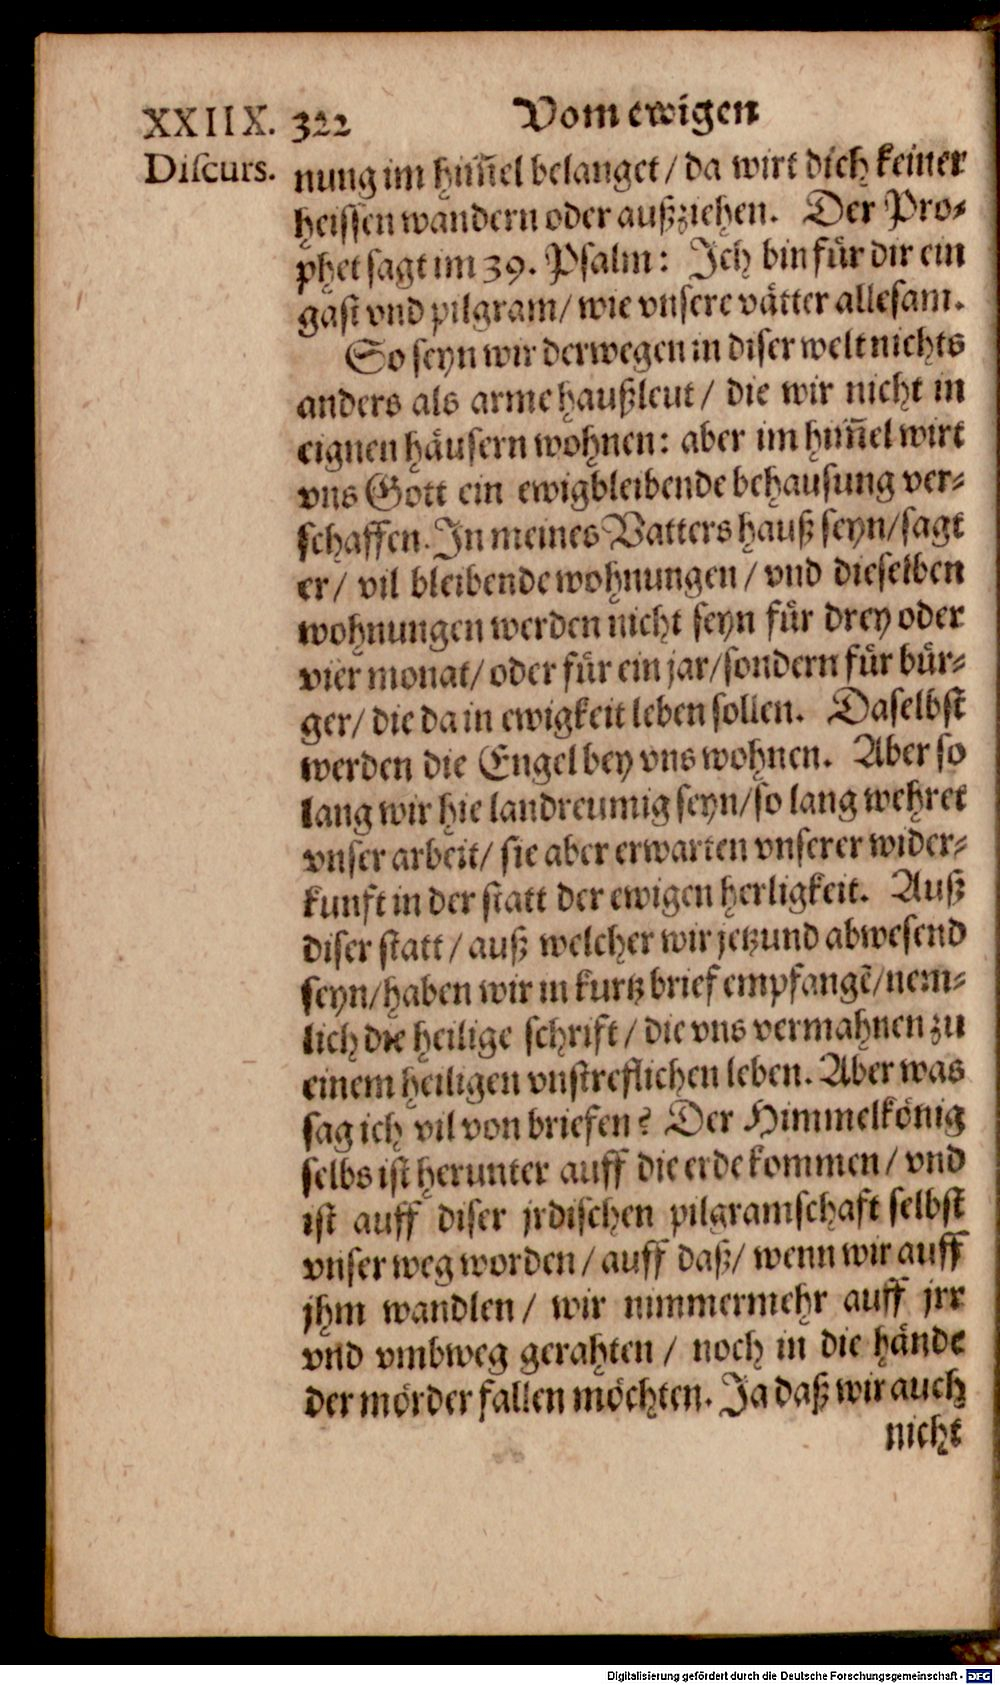 XXIIX. 322 Vom ewigen
Discurs.
nung im him̃el belanget / da wirt dich keiner
heissen wandern oder außziehen. Der Pro-
phet sagt im 39. Psalm: Ich bin für dir ein
gast vnd pilgram / wie vnsere vätter allesam.
So seyn wir derwegen in diser welt nichts
anders als arme haußleut / die wir nicht in
eignen häusern wohnen: aber im him̃el wirt
vns Gott ein ewigbleibende behausung ver-
schaffen. In meines Vatters hauß seyn / sagt
er / vil bleibende wohnungen / vnd dieselben
wohnungen werden nicht seyn für drey oder
vier monat / oder für ein jar / sondern für bür-
ger / die da in ewigkeit leben sollen. Daselbst
werden die Engel bey vns wohnen. Aber so
lang wir hie landreumig seyn / so lang wehret
vnser arbeit / sie aber erwarten vnserer wider-
kunft in der statt der ewigen herligkeit. Auß
diser statt / auß welcher wir jetzund abwesend
seyn / haben wir in kurtz brief empfangẽ / nem-
lich die heilige schrift / die vns vermahnen zu
einem heiligen vnstreflichen leben. Aber was
sag ich vil von briefen? Der Himmelkönig
selbs ist herunter auff die erde kommen / vnd
ist auff diser jrdischen pilgramschaft selbst
vnser weg worden / auff daß / wenn wir auff
jhm wandlen / wir nimmermehr auff jrr
vnd vmbweg gerahten / noch in die hände
der mörder fallen möchten. Ja daß wir auch
nicht
Digitalisierung gefördert durch die Deutsche Forschungsgemeinschaft - DFG